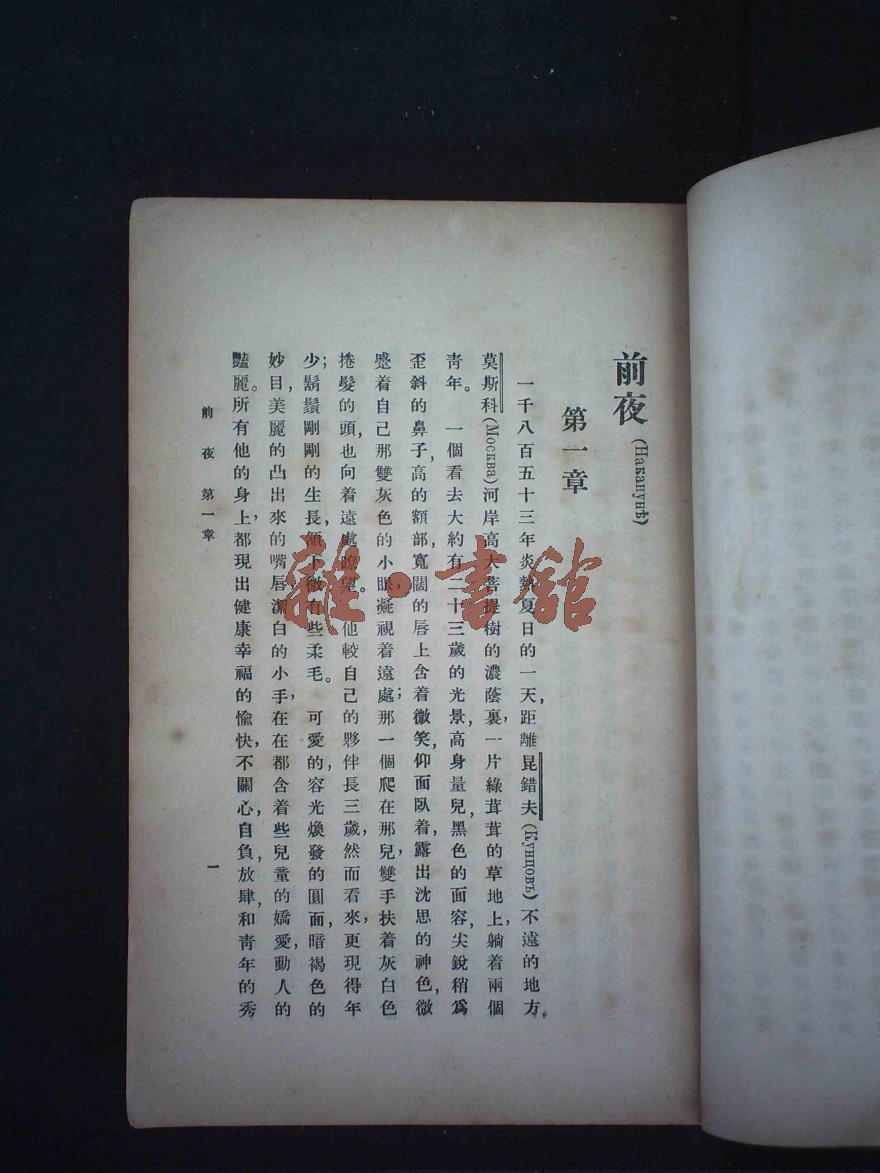 前夜(Наканунѣ)
第一章
一千八百五十三年炎熱夏日的一天,距離昆錯夫(Кунцовъ)不遠的地方。
莫斯科(Москва)河岸高大菩提樹的濃蔭裏,一片綠茸茸的草地上,躺着兩個
靑年。一個看去大約有二十三歲的光景,高身量兒,黑色的面容,尖銳稍爲
歪斜的鼻子,高的額部,寬闊的唇上含着微笑,仰面臥着,露出沈思的神色,微
蹙着自己那雙灰色的小眼,凝視着遠處;那一個爬在那兒,雙手扶着灰白色
捲髮的頭,也向着遠處瞭望。他較自己的夥伴長三歲,然而看來,更現得年
少;鬍鬚剛剛的生長,頷下微有些柔毛。可愛的容光煥發的圓面,暗褐色的
妙目,美麗的凸出來的嘴唇,潔白的小手,在在都含着些兒童的嬌愛,動人的
豔麗。所有他的身上,都現出健康幸福的愉快,不關心,自負,放肆,和靑年的秀
前夜 第一章
一
雜·書館